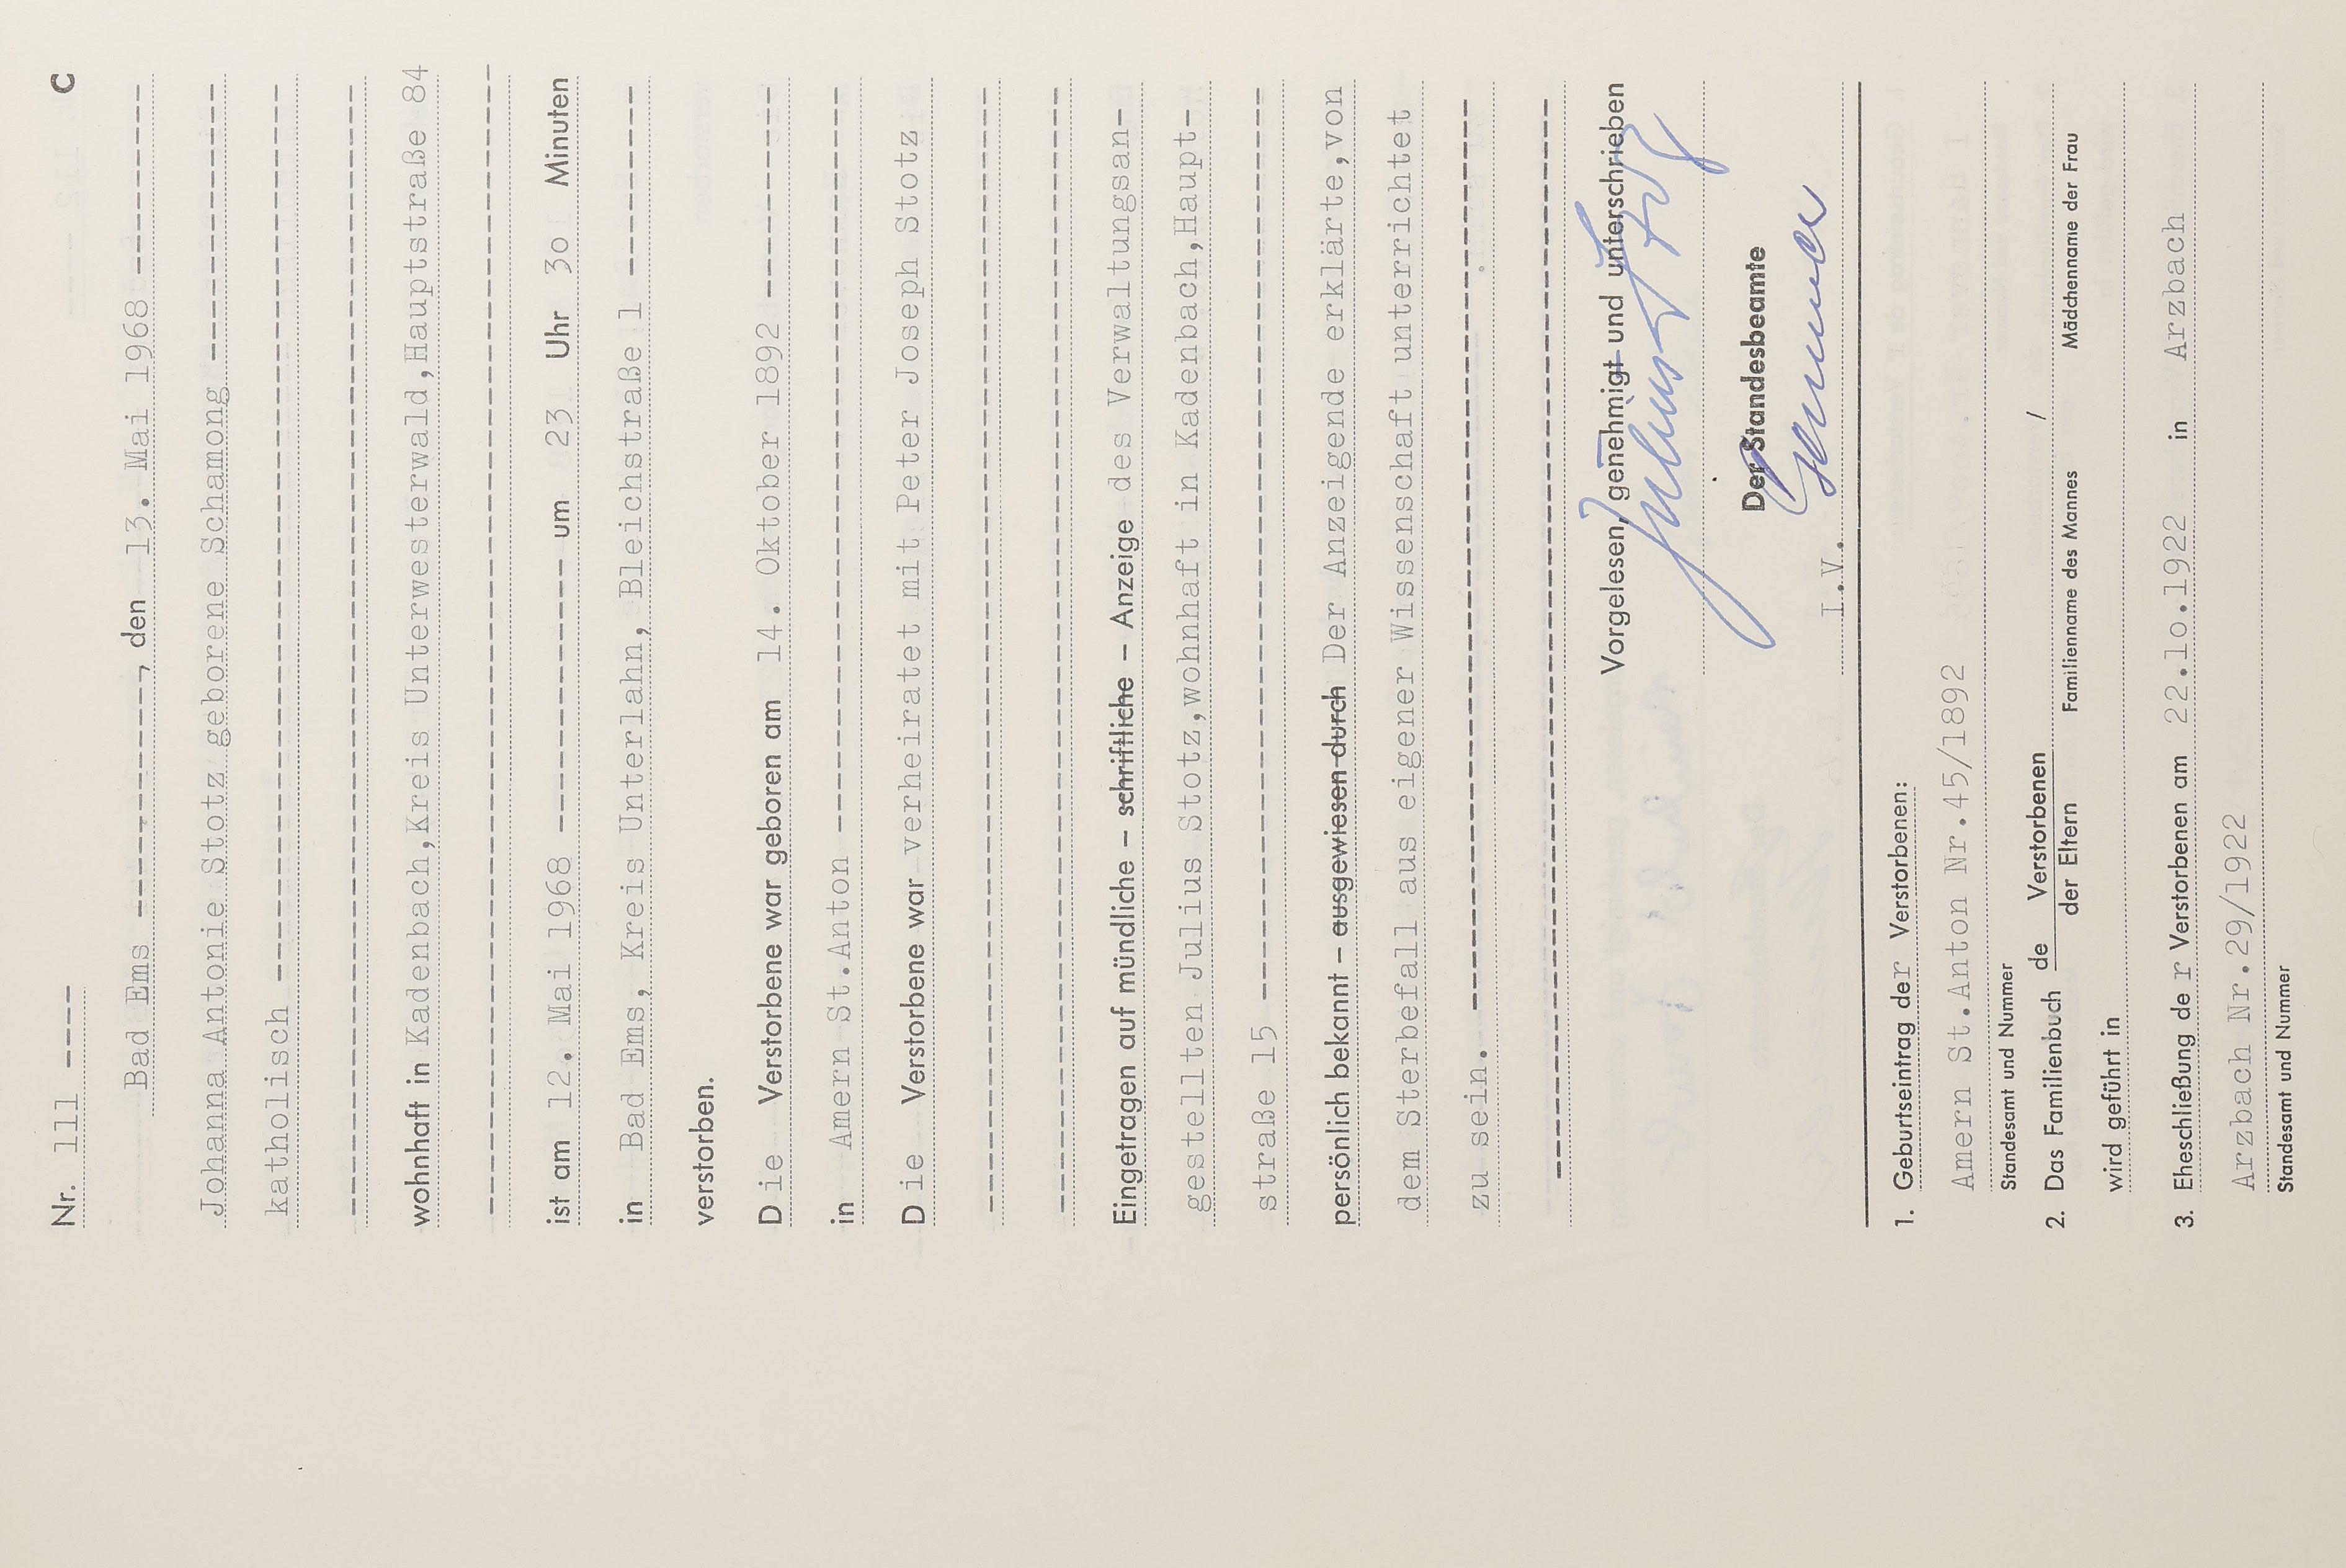 Nr. 111 ---- C
Bad Ems ---------------, den 13. Mai 1968 ----------
Johanna Antonie Stotz geborene Schamong --------------
katholisch ----------------------------------------
----------------------------------------------------
wohnhaft in Kadenbach,Kreis Unterwesterwald,Hauptstraße 84
----------------------------------------------------
ist am 12. Mai 1968 --------------- um 23 Uhr 3o Minuten
in Bad Ems, Kreis Unterlahn, Bleichstraße 1 ----------
verstorben.
Die Verstorbene war geboren am 14. Oktober 1892 -----------
in Amern St.Anton ------------------------------------
Die Verstorbene war verheiratet mit Peter Joseph Stotz
----------------------------------------------------
----------------------------------------------------
Eingetragen auf mündliche – schriftliche – Anzeige des Verwaltungsan-
gestellten Julius Stotz,wohnhaft in Kadenbach,Haupt-
straße 15 --------------------------------------------
persönlich bekannt – ausgewiesen durch Der Anzeigende erklärte,von
dem Sterbefall aus eigener Wissenschaft unterrichtet
zu sein. ---------------------------------------------
----------------------------------------------------
Vorgelesen, genehmigt und unterschrieben
Julius Stotz
Der Standesbeamte
I.V.
1. Geburtseintrag der Verstorbenen:
Amern St.Anton Nr.45/1892
Standesamt und Nummer
2. Das Familienbuch de Verstorbenen /
der Eltern Familienname des Mannes Mädchenname der Frau
wird geführt in
3. Eheschließung der Verstorbenen am 22.1o.1922 in Arzbach
Arzbach Nr.29/1922
Standesamt und Nummer